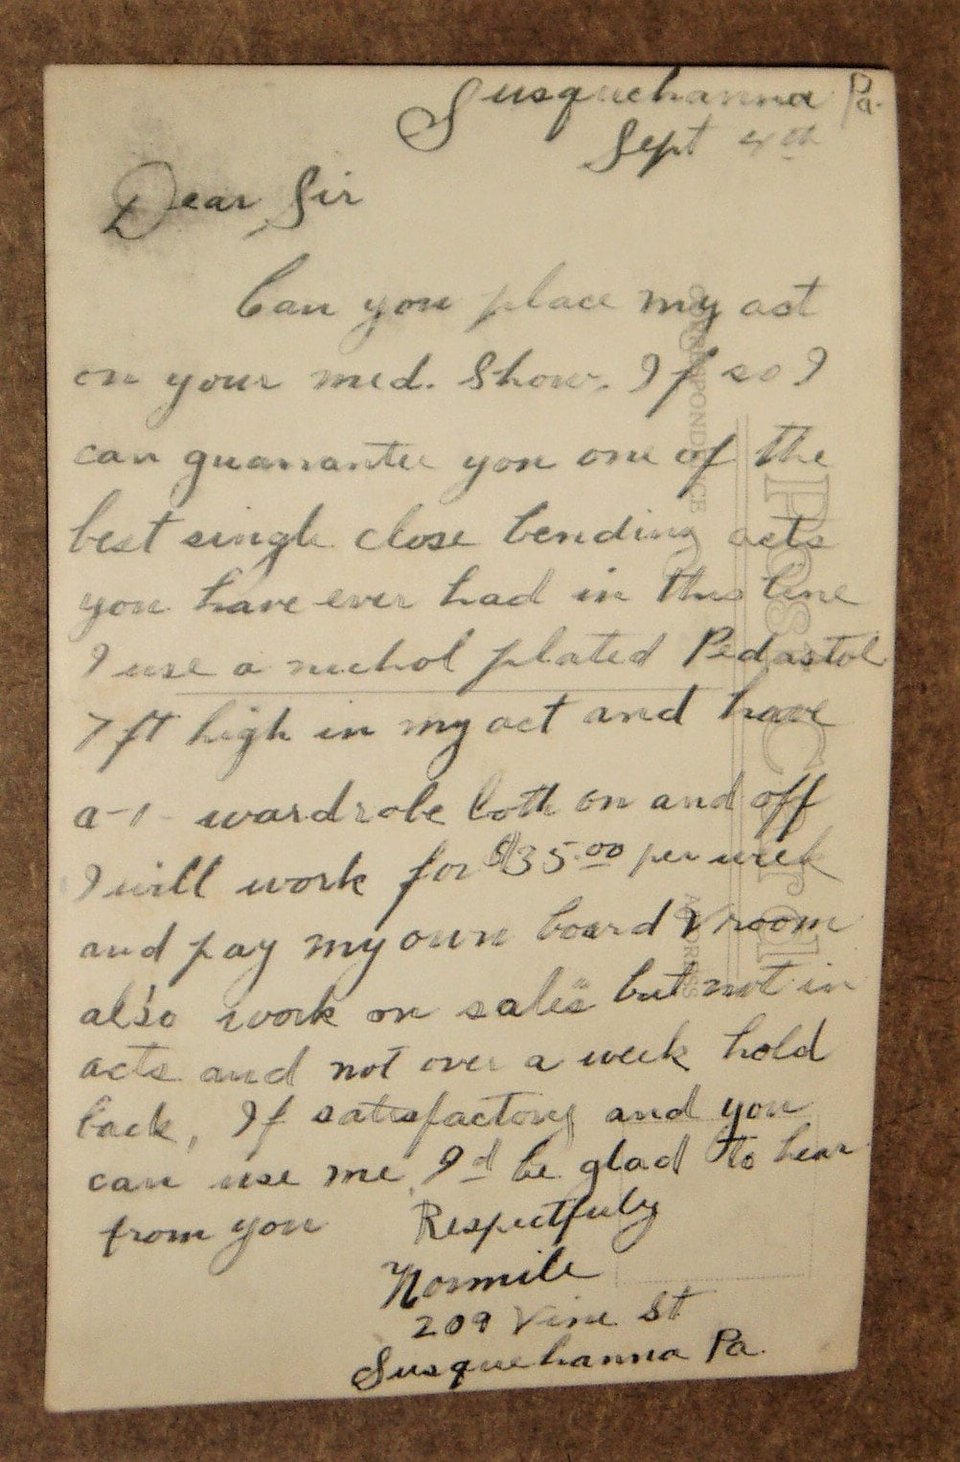 Susquehanna Pa.
Sept 4th
Dear Sir
Can you place my act
on your med. Show. If so I
can guarrantee you one of the
best single close bending acts
you have ever had in this line
I use a nichol plated Pedastol
7 ft high in my act and have
a-1- wardrobe both on and off
I will work for $35.00 per week
and pay my own board & room
also work on sales but not in
acts and not over a week hold
back, If satisfactory and you
can use me, I'd be glad to hear
from you Respectfuly
Normile
209 Vine St
Susquehanna Pa.
CORRESPONDENCE
Post Card
ADDRESS